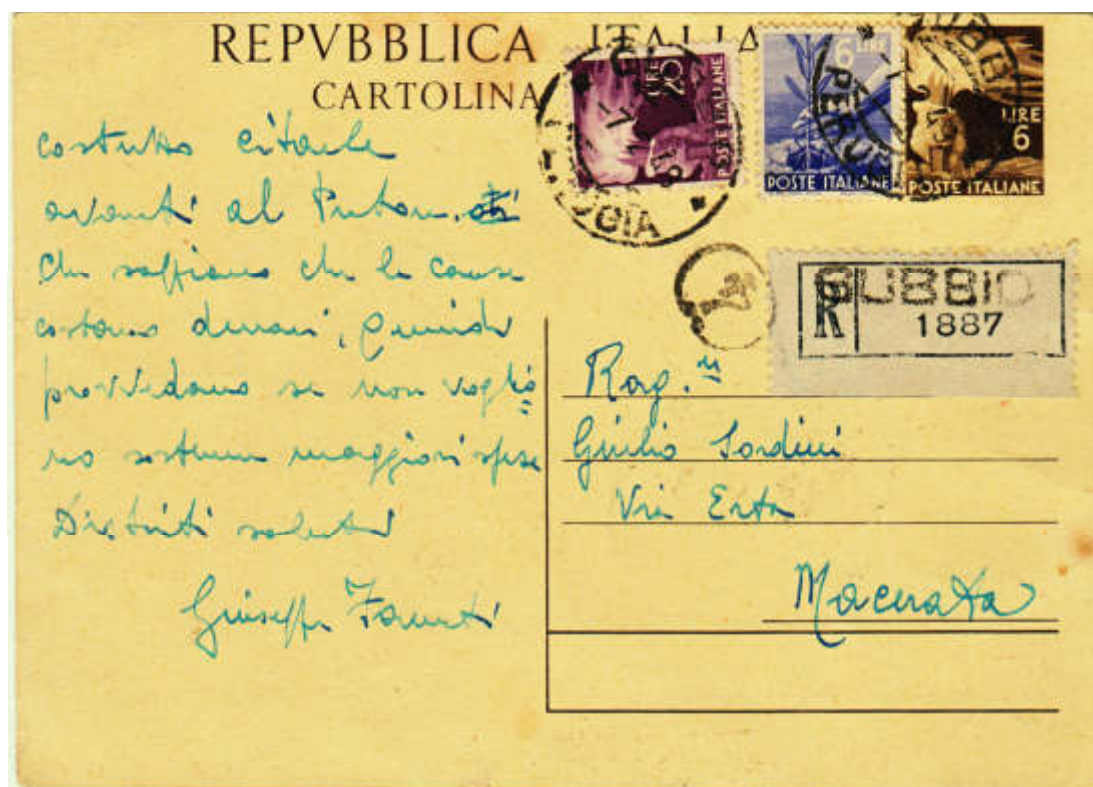 REPVBBLICA ITALIA
CARTOLINA
LIRE 20
POSTE ITALIANE
6 LIRE
POSTE ITALIANE
LIRE 6
POSTE ITALIANE
PERU
R
GUBBIO
1887
costretto citarle
avanti al
che sappiamo che le cause
costano denari, quindi
provvedano se non voglio
no sostenere maggiori spese
Distinti saluti
Giuseppe
Rag.
Giulio Sordini
Via Erta
Macerata